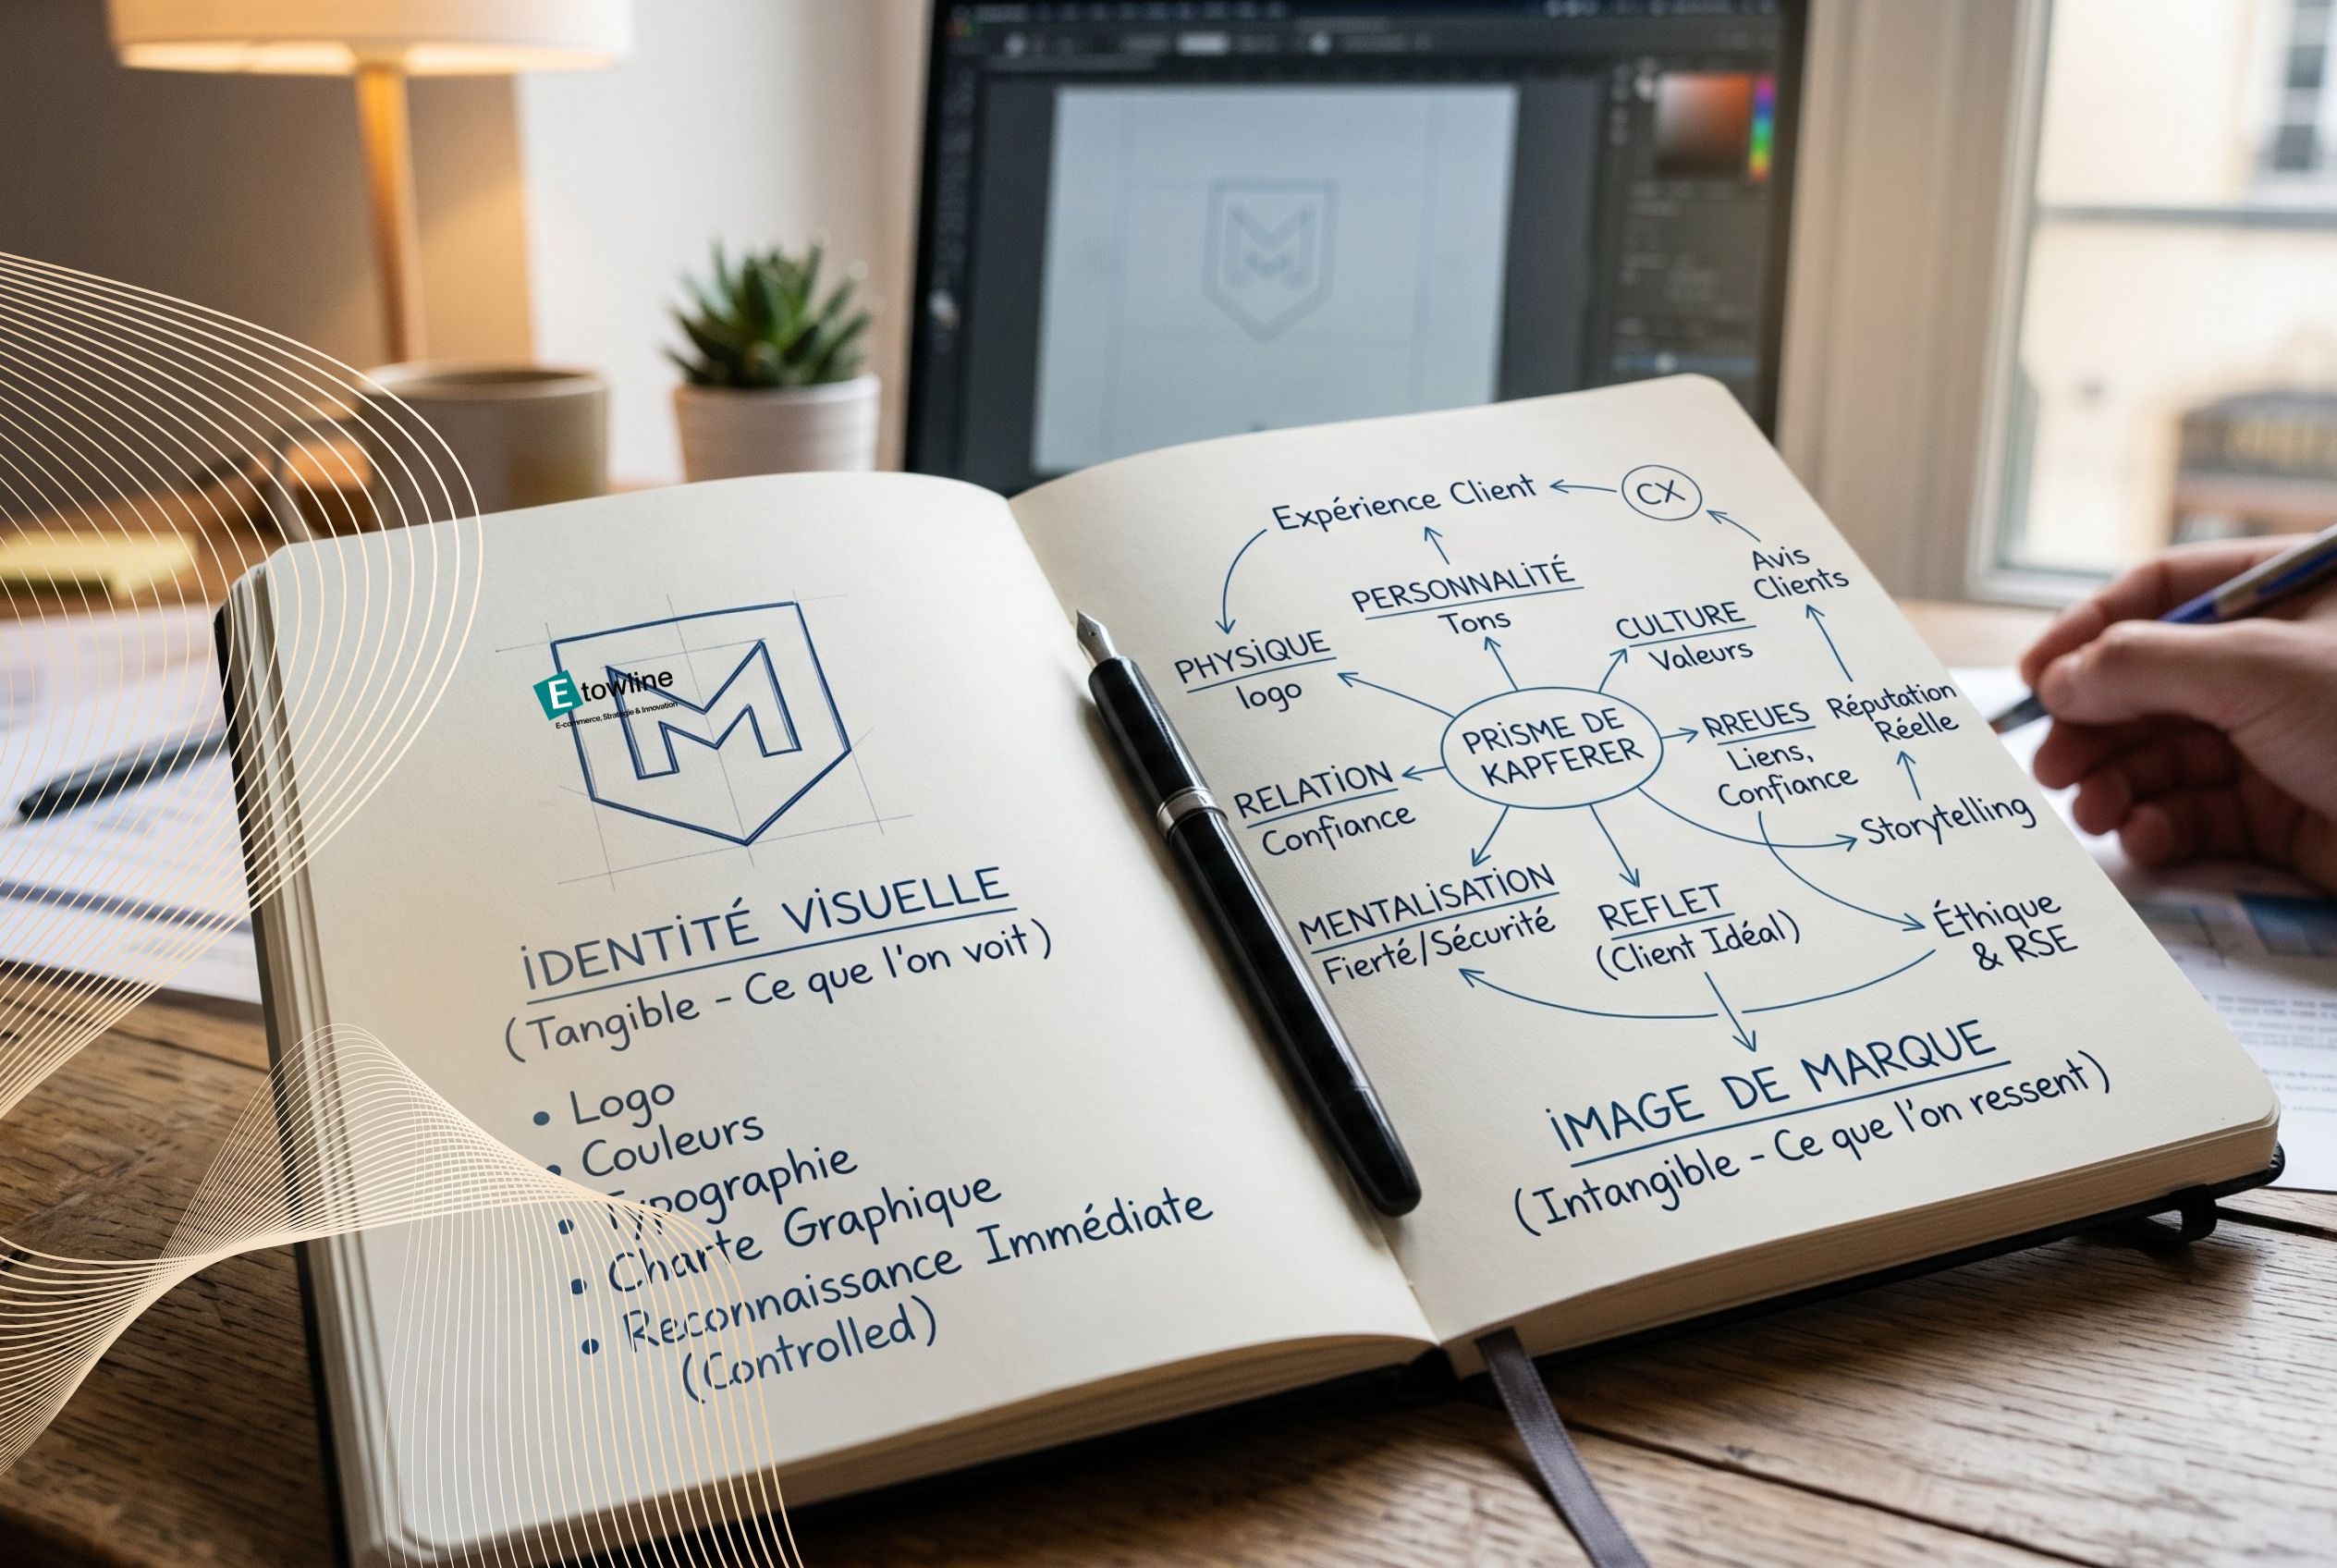 Etowline
E-commerce, Strategie & Innovation
IDENTITÉ VISUELLE
(Tangible - Ce que l'on voit)
• Logo
• Couleurs
• Typographie
• Charte Graphique
• Reconnaissance Immédiate
(Controlled)
Expérience Client
CX
Avis
Clients
PERSONNALITÉ
Tons
CULTURE
Valeurs
PHYSIQUE
logo
PRISME DE
KAPFERER
RREUES
Liens,
Confiance
Réputation
Réelle
RELATION
Confiance
Storytelling
MENTALISATION
Fierté/Sécurité
REFLET
(Client Idéal)
Éthique
& RSE
IMAGE DE MARQUE
(Intangible - Ce que l'on ressent)